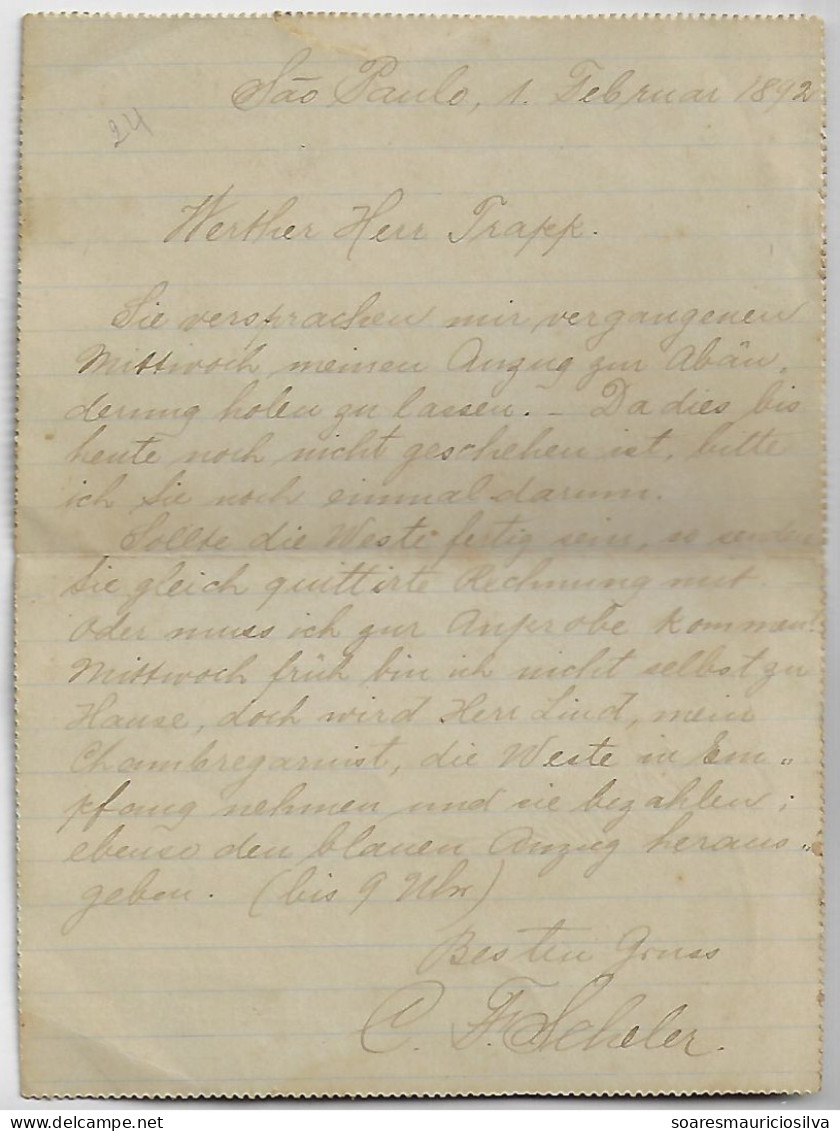 São Paulo, 1. Februar 1892
24
Werther Herr Trapp.
Sie versprachen mir vergangenen
Mittwoch meinen Anzug zur Abän„
derung holen zu lassen. – Da dies bis
heute noch nicht geschehen ist, bitte
ich Sie noch einmal darum.
Sollte die Weste fertig sein, so senden
Sie gleich quittirte Rechnung mit
oder muss ich zur Anprobe kommen?
Mittwoch früh bin ich nicht selbst zu
Hause, doch wird Herr Lind, mein
Chambregarnist, die Weste in Em„
pfang nehmen und sie bezahlen;
ebenso den blauen Anzug heraus„
geben. (bis 9 Uhr)
Besten Gruss
C. F. Scheler.
delcampe.net
soaresmauriciosilva